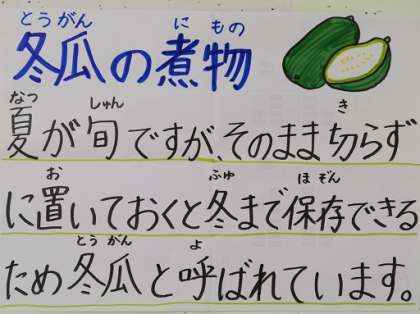 とうがん に もの
冬瓜の煮物
なつ しゅん き
夏が旬ですが、そのまま切らず
お ふゆ ほ ぞん
に置いておくと冬まで保存できる
とう がん よ
ため冬瓜と呼ばれています。